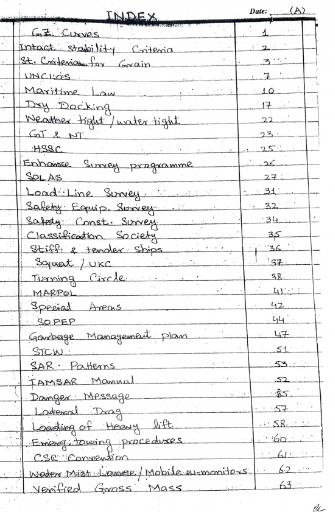 INDEX Date: (A)
GZ Curves 1
Intact Stability Criteria 2
St. Criteria for Grain 3
UNCLOS 7
Maritime Law 10
Dry Docking 17
Weather tight / water tight 22
GT & NT 23
HSSC 25
Enhanse Survey programme 26
SOLAS 27
Load Line Survey 31
Safety Equip. Survey 32
Safety Const. Survey 34
Classification Society 35
Stiff & tender ships 36
Squat / UKC 37
Turning Circle 38
MARPOL 41
Special Areas 42
SOPEP 44
Garbage Management plan 47
STCW 51
SAR Patterns 53
IAMSAR Manual 52
Danger Message 55
Lateral Drag 57
Loading of Heavy lift 58
Emerg. towing procedures 60
CSC Convention 61
Water Mist / Mobile w. monitors 62
Verified Gross Mass 63